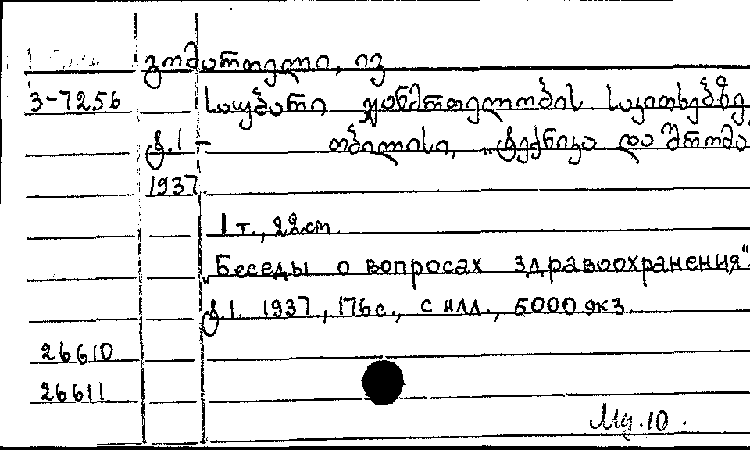 გომართელი, ივ
3-7256 საუბარი ჯანმრთელობის საკითხებზე,
ტ.1 - თბილისი, „ტექნიკა და შრომა
1937.
1 т., 22см.
„Беседы о вопросах здравоохранения"
ტ.1. 1937, 176 с., с илл., 5000 экз.
26610
26611
Мд.10.